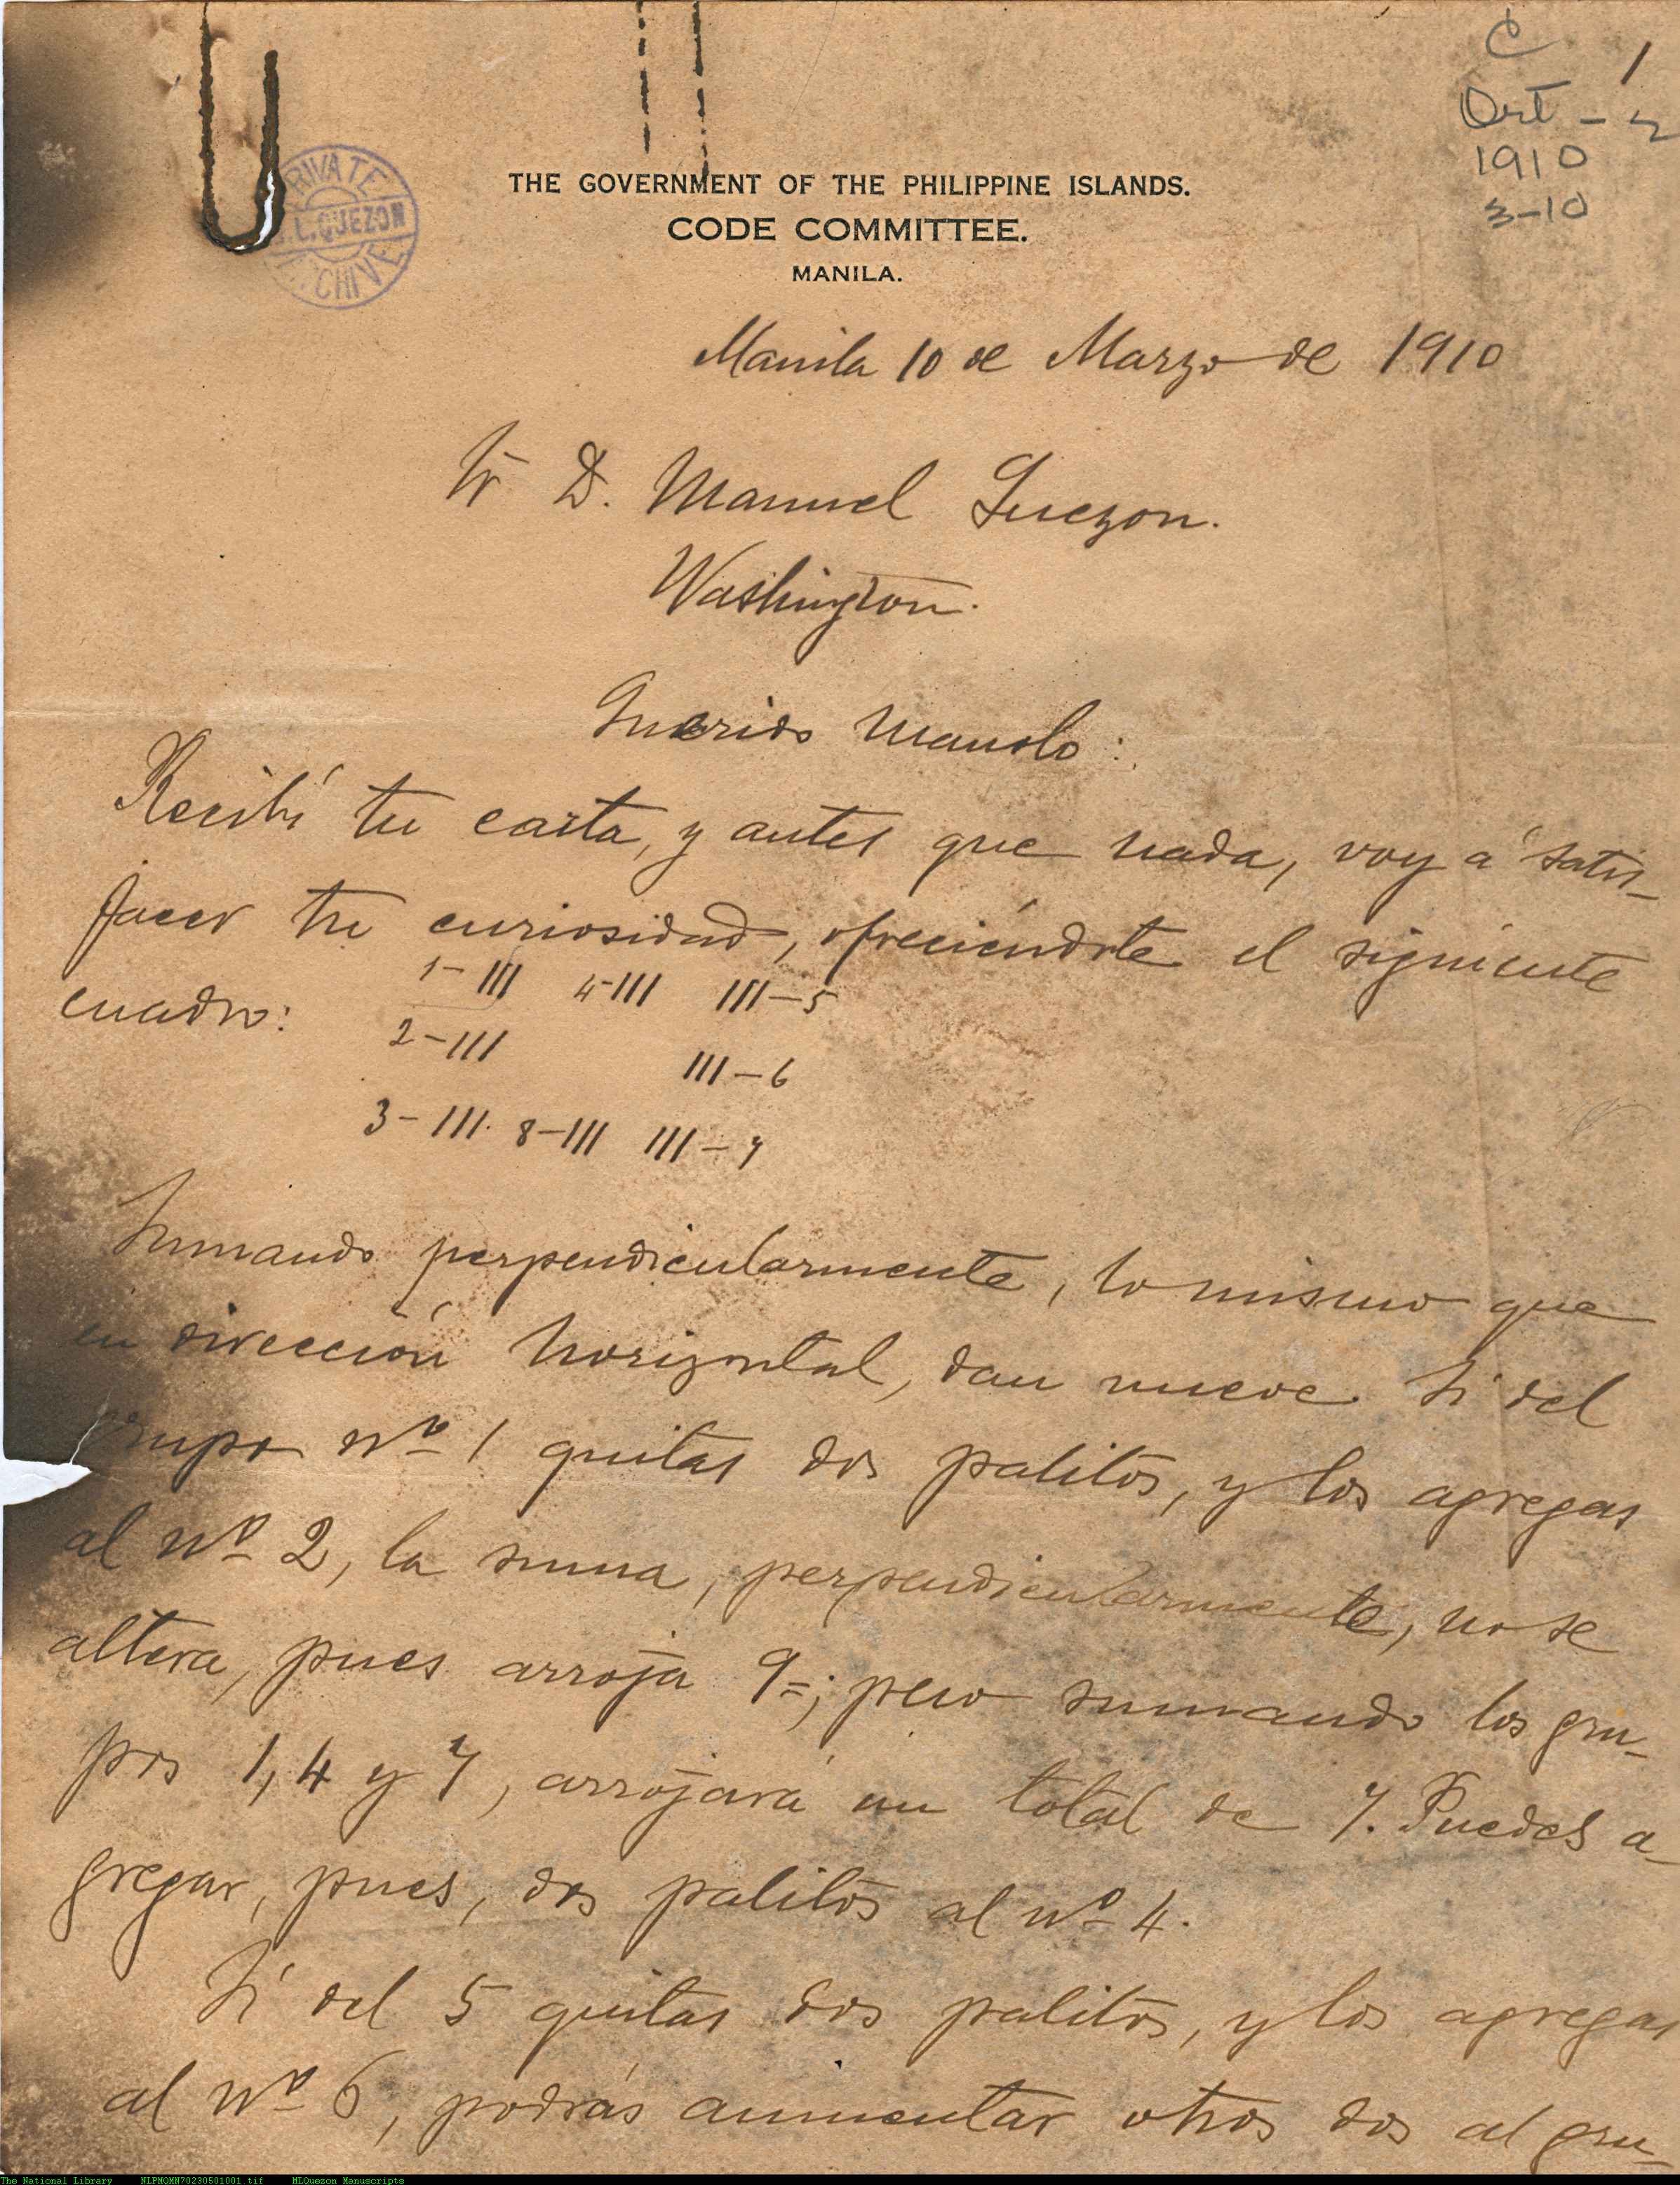 C 1
Ort - 2
1910
3-10
PRIVATE
M.L. QUEZON
ARCHIVE
THE GOVERNMENT OF THE PHILIPPINE ISLANDS.
CODE COMMITTEE.
MANILA.
Manila 10 de Marzo de 1910
Sr D. Manuel Quezon.
Washington.
Querido Manolo:
Recibí tu carta, y antes que nada, voy á satis-
facer tu curiosidad, ofreciéndote el siguiente
cuadro:
1-III 4-III III-5
2-III III-6
3-III. 8-III III-7
Sumando perpendicularmente, lo mismo que
en dirección horizontal, dan nueve. Si del
grupo Nº 1 quitas dos palitos, y los agregas
al Nº 2, la suma, perpendicularmente, no se
altera, pues arroja 9=; pero sumando los gru-
pos 1, 4 y 7, arrojará un total de 7. Puedes a-
gregar, pues, dos palitos al Nº 4.
Si del 5 quitas dos palitos, y los agregas
al Nº 6, podrás aumentar otros dos al gru-
The National Library NLPMQMN70230501001.tif MLQuezon Manuscripts